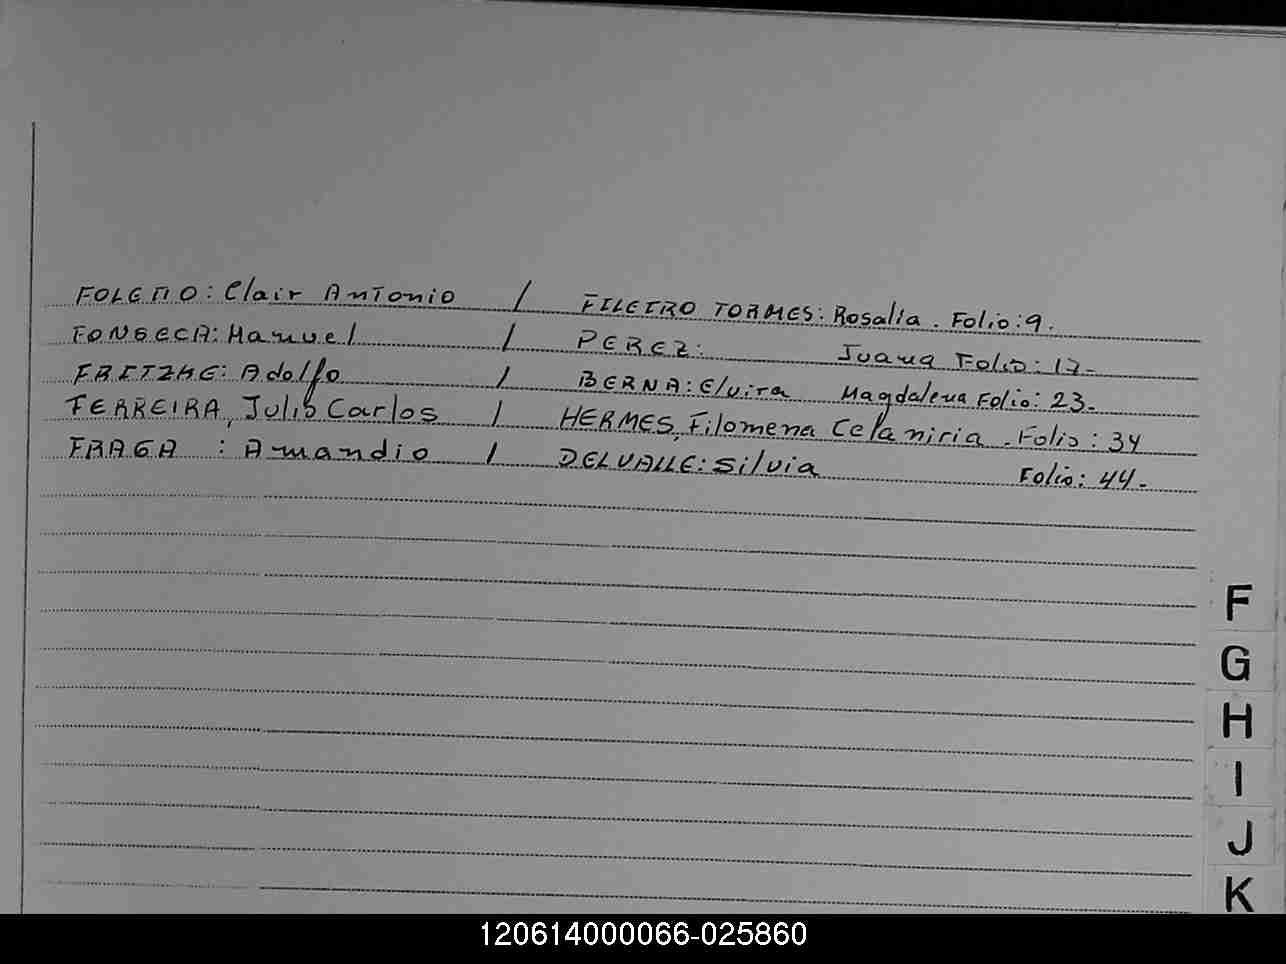 FOLETTO: Clair Antonio / FILETRO TORMES: Rosalia. Folio: 9.
FONSECA: Manuel / PEREZ: Juana Folio: 17-
FRITZKE: Adolfo / BERNA: Elvira Magdalena Folio: 23-
FERREIRA, Julio Carlos / HERMES, Filomena Celaniria. Folio: 34
FRAGA : Amandio / DELVALLE: Silvia Folio: 44-
F
G
H
I
J
K
120614000066-025860